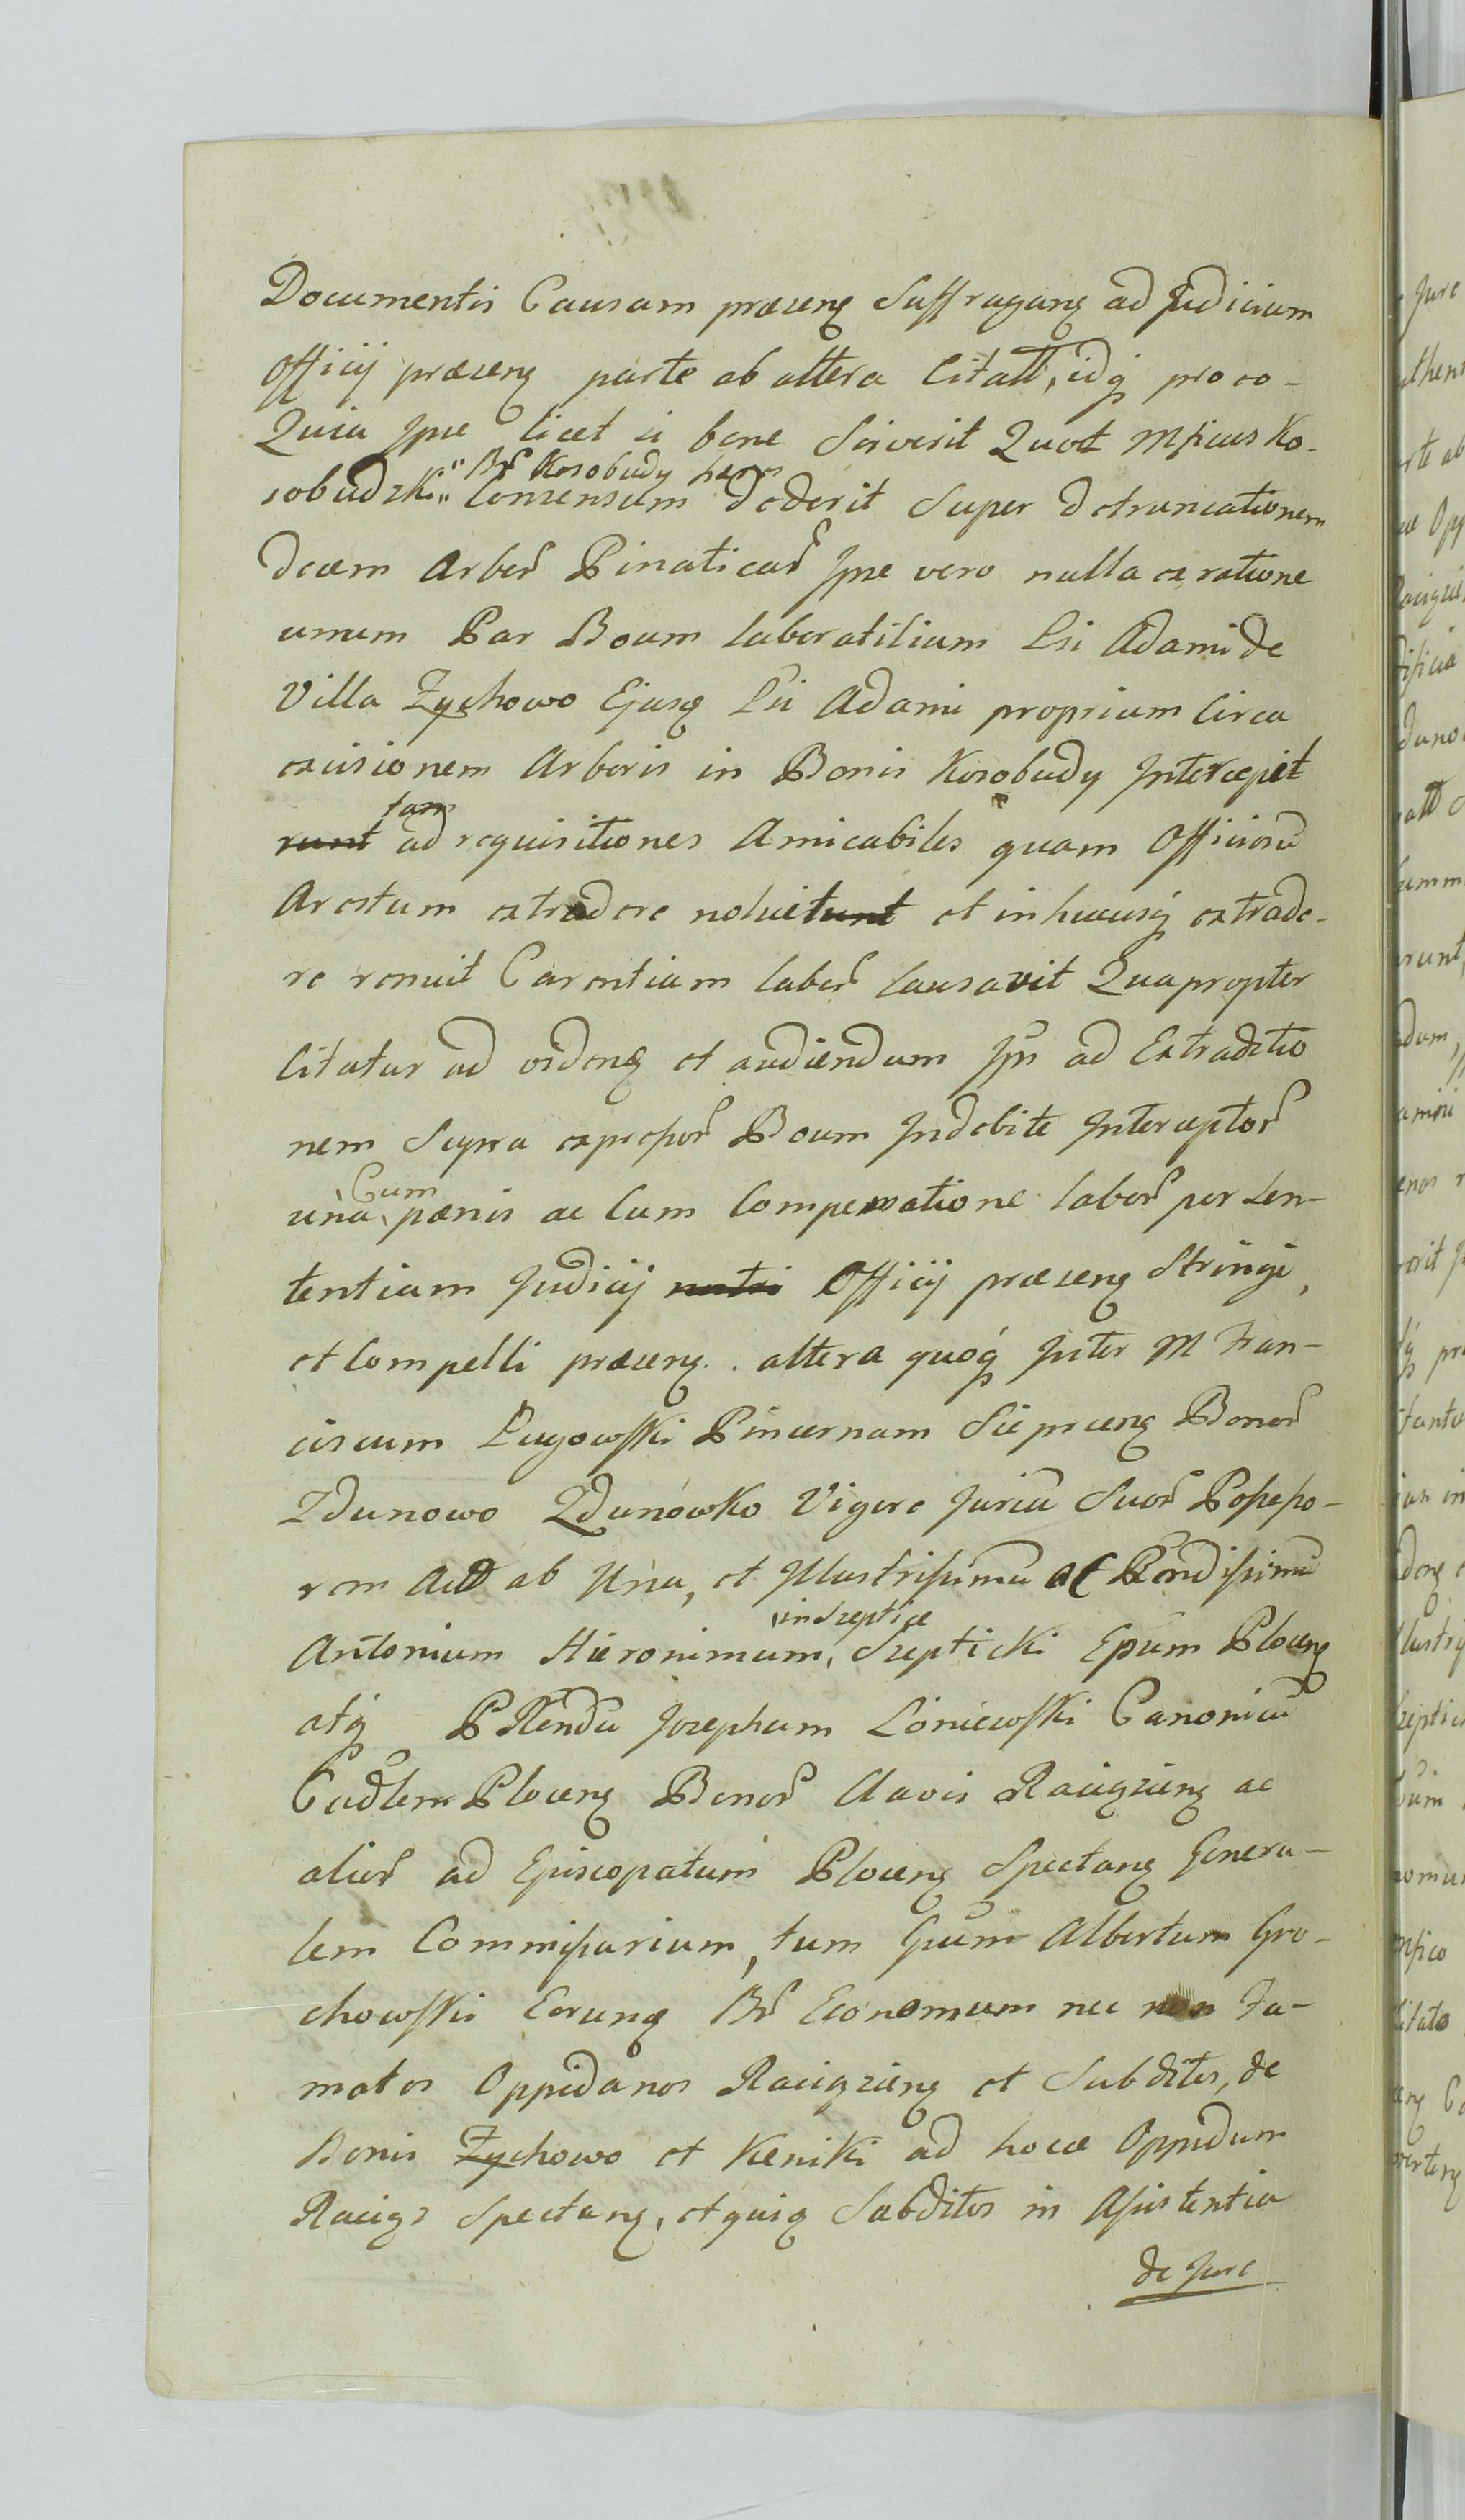 Documentis Causam præseng Suffragang ad Judicium
Officij præseng parte ab altera Citatt, idq pro eo-
Quia Ipse licet si bene Sciverit Quot Mficus Ko-
sobudzki" Br Kosobudy hæres" Consensum dederit Super detruncationem
decem Arbor Pinaticar Ipse vero nulla ex ratione
unum Par Boum laboratilium Lsi Adami de
Villa Zychowo Ejusq Lsi Adami proprium Circa
excisionem Arboris in Bonis Kosobudy Intercepit
runt tam ad requisitiones Amicabiles quam Officiosū
Arestum extradere noluitunt et in hucusq extrade-
re renuit Carentiam labor Causavit Quapropter
Citatur ad videng et audiendum Ipn ad Extraditio
nem Supra expressor Boum Indebite Interceptor
una Cum pænis ac Cum Compensatione labor per Sen-
tentiam Judicij nostri Officij præseng Stringi,
et Compelli præseng. altera quoq Inter M Fran-
ciscum Lugowski Pincernam Sieprceng Bonor
Zdunowo Zdunowko Vigore Juriū Suor Possesso-
rem Actt ab Una, et Illustrissimū ac Rendissimū
Antonium Hieronimum, in Szeptice Szepticki Epūm Ploceng
atq PRendū Josephum Loniewski Canonicū
Cadlem Ploceng Bonor Clavis Raciązieng ac
alior ad Episcopatum Ploceng Spectang Genera-
lem Commissarium, tum Gūm Albertum Gro-
chowski Eorunq Br Economum nec non Fa-
matos Oppidanos Raciązieng et Subditos, de
Bonis Zychowo et Kieniki ad hocce Oppidum
Raciąz Spectang, etquisq Subditos in Assistentia
de Jure